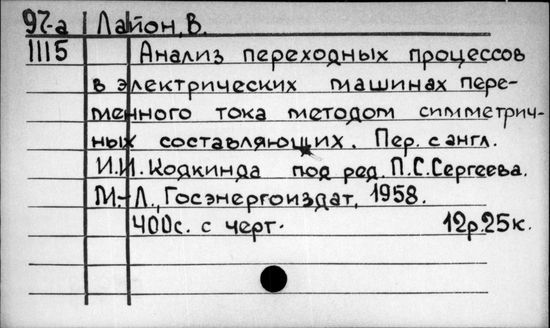 97-а Лайон, В.
1115 Анализ переходных процессов
в электрических машинах пере-
менного тока методом симметрич-
ных составляющих. Пер. с англ.
И.И. Кодкинда под ред. П.С. Сергеева.
М.-Л., Госэнергоиздат, 1958.
400с. с черт. 12р.25к.